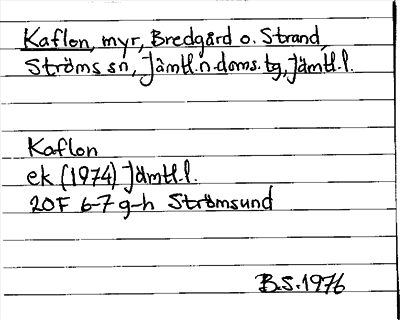 Kaflon, myr, Bredgård o. Strand,
Ströms sn, Jämtl.n.doms.tg, Jämtl.l.
Kaflon
ek (1974) Jämtl.l.
20F 6-7 g-h Strömsund
B.S.1976